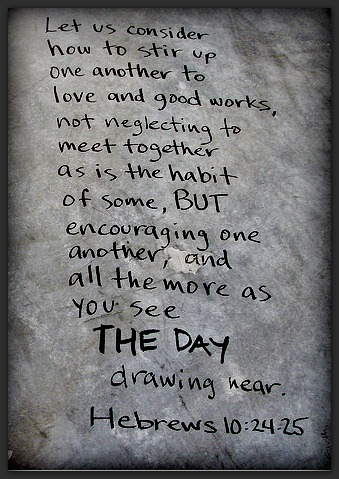 Let us consider
how to stir up
one another to
love and good works,
not neglecting to
meet together
as is the habit
of some, BUT
encouraging one
another, and
all the more as
you see
THE DAY
drawing near.
Hebrews 10:24-25